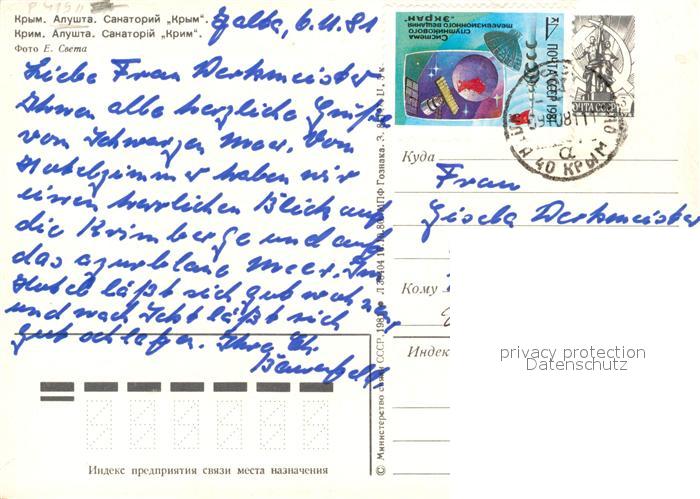 Крым. Алушта. Санаторий „Крым“.
Крим. Алушта. Санаторій „Крим“.
Фото Е. Света
Jalta, 6.11.81
Liebe Frau Werkmeister
Ihnen alle herzliche Grüße
vom Schwarzen Meer. Vom
Hotelzimmer haben wir
einen herrlichen Blick auf
die Krimberge und auf
das azurblaue Meer. Im
Hotel läßt sich gut wohnen,
und nach Sekt läßt sich
gut schlafen. Ihre
Система
спутникового
телевизионного вещания
"ЭКРАН"
ПОЧТА СССР 1981
ПОЧТА СССР
40 КРЫМ
Куда
Frau
Gisela Werkmeister
Кому
Индекс
privacy protection
Datenschutz
Индекс предприятия связи места назначения
© Министерство связи СССР. 198
МПФ Гознака.